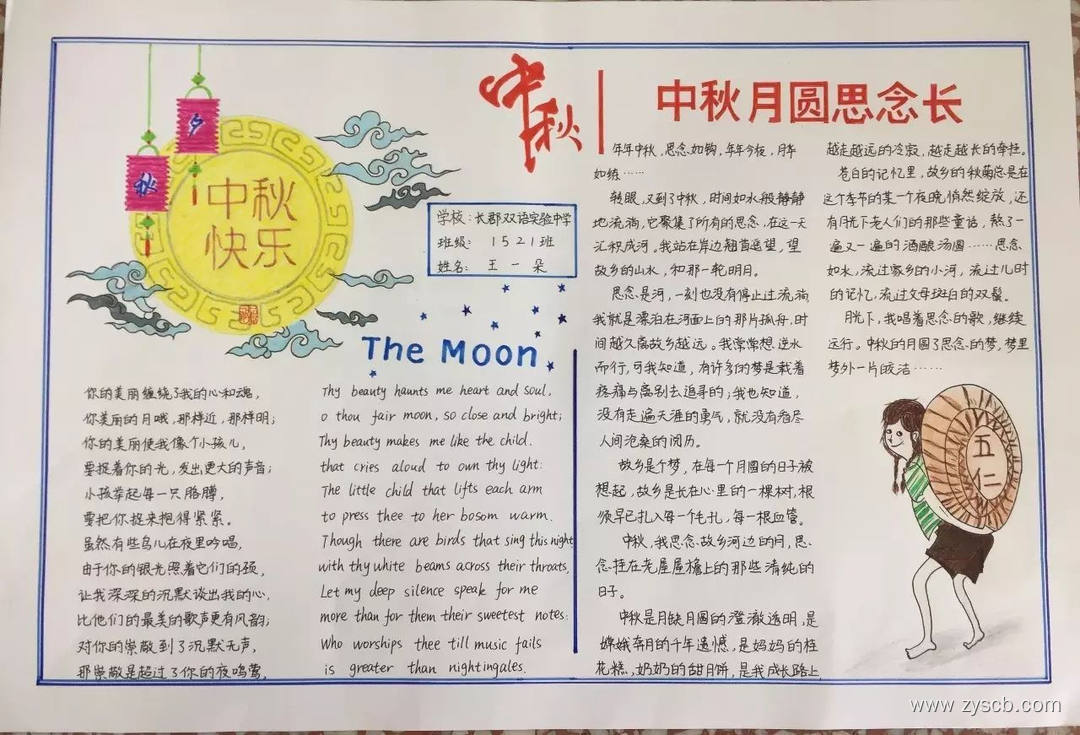 夕
秋
中秋
快乐
中秋
学校：长郡双语实验中学
班级：1521班
姓名：王一朵
The Moon
你的美丽缠绕了我的心和魂，
你美丽的月哦，那样近，那样明；
你的美丽使我像个小孩儿，
要捉着你的光，发出更大的声音；
小孩举起每一只胳膊，
要把你捉来抱得紧紧。
虽然有些鸟儿在夜里吟唱，
由于你的银光照着它们的颈，
让我深深的沉默谈出我的心，
比他们的最美的歌声更有风韵；
对你的崇敬到了沉默无声，
那崇敬是超过了你的夜鸣莺，
Thy beauty haunts me heart and soul,
o thou fair moon, so close and bright;
Thy beauty makes me like the child.
that cries aloud to own thy light:
The little child that lifts each arm
to press thee to her bosom warm.
Though there are birds that sing this night
with thy white beams across their throats,
Let my deep silence speak for me
more than for them their sweetest notes:
Who worships thee till music fails
is greater than nightingales.
中秋月圆思念长
年年中秋，思念如钩，年年今夜，月华
如练……
转眼，又到了中秋，时间如水般静静
地流淌，它聚集了所有的思念，在这一天
汇积成河。我站在岸边翘首遥望，望
故乡的山水，和那一轮明月。
思念是河，一刻也没有停止过流淌
我就是漂泊在河面上的那片孤舟，时
间越久离故乡越远。我常常想逆水
而行，可我知道，有许多的梦是载着
疼痛与离别去追寻的；我也知道，
没有走遍天涯的勇气，就没有看尽
人间沧桑的阅历。
故乡是个梦，在每个月圆的日子被
想起，故乡是长在心里的一棵树，根
须早已扎入每一个毛孔，每一根血管。
中秋，我思念故乡河边的月，思
念挂在老屋屋檐上的那些清纯的
日子。
中秋是月缺月圆的澄澈透明，是
嫦娥奔月的千年遗憾，是妈妈的桂
花糕，奶奶的甜月饼，是我成长路上
越走越远的冷寂，越走越长的牵挂。
苍白的记忆里，故乡的秋菊总是在
这个季节的某一个夜晚悄然绽放，还
有月光下老人们的那些童话，熬了一
遍又一遍的酒酿汤圆……思念
如水，流过家乡的小河，流过儿时
的记忆，流过父母斑白的双鬓。
月光下，我唱着思念的歌，继续
远行。中秋的月圆了思念的梦，梦里
梦外一片皎洁……
五
仁
www.zyscb.com